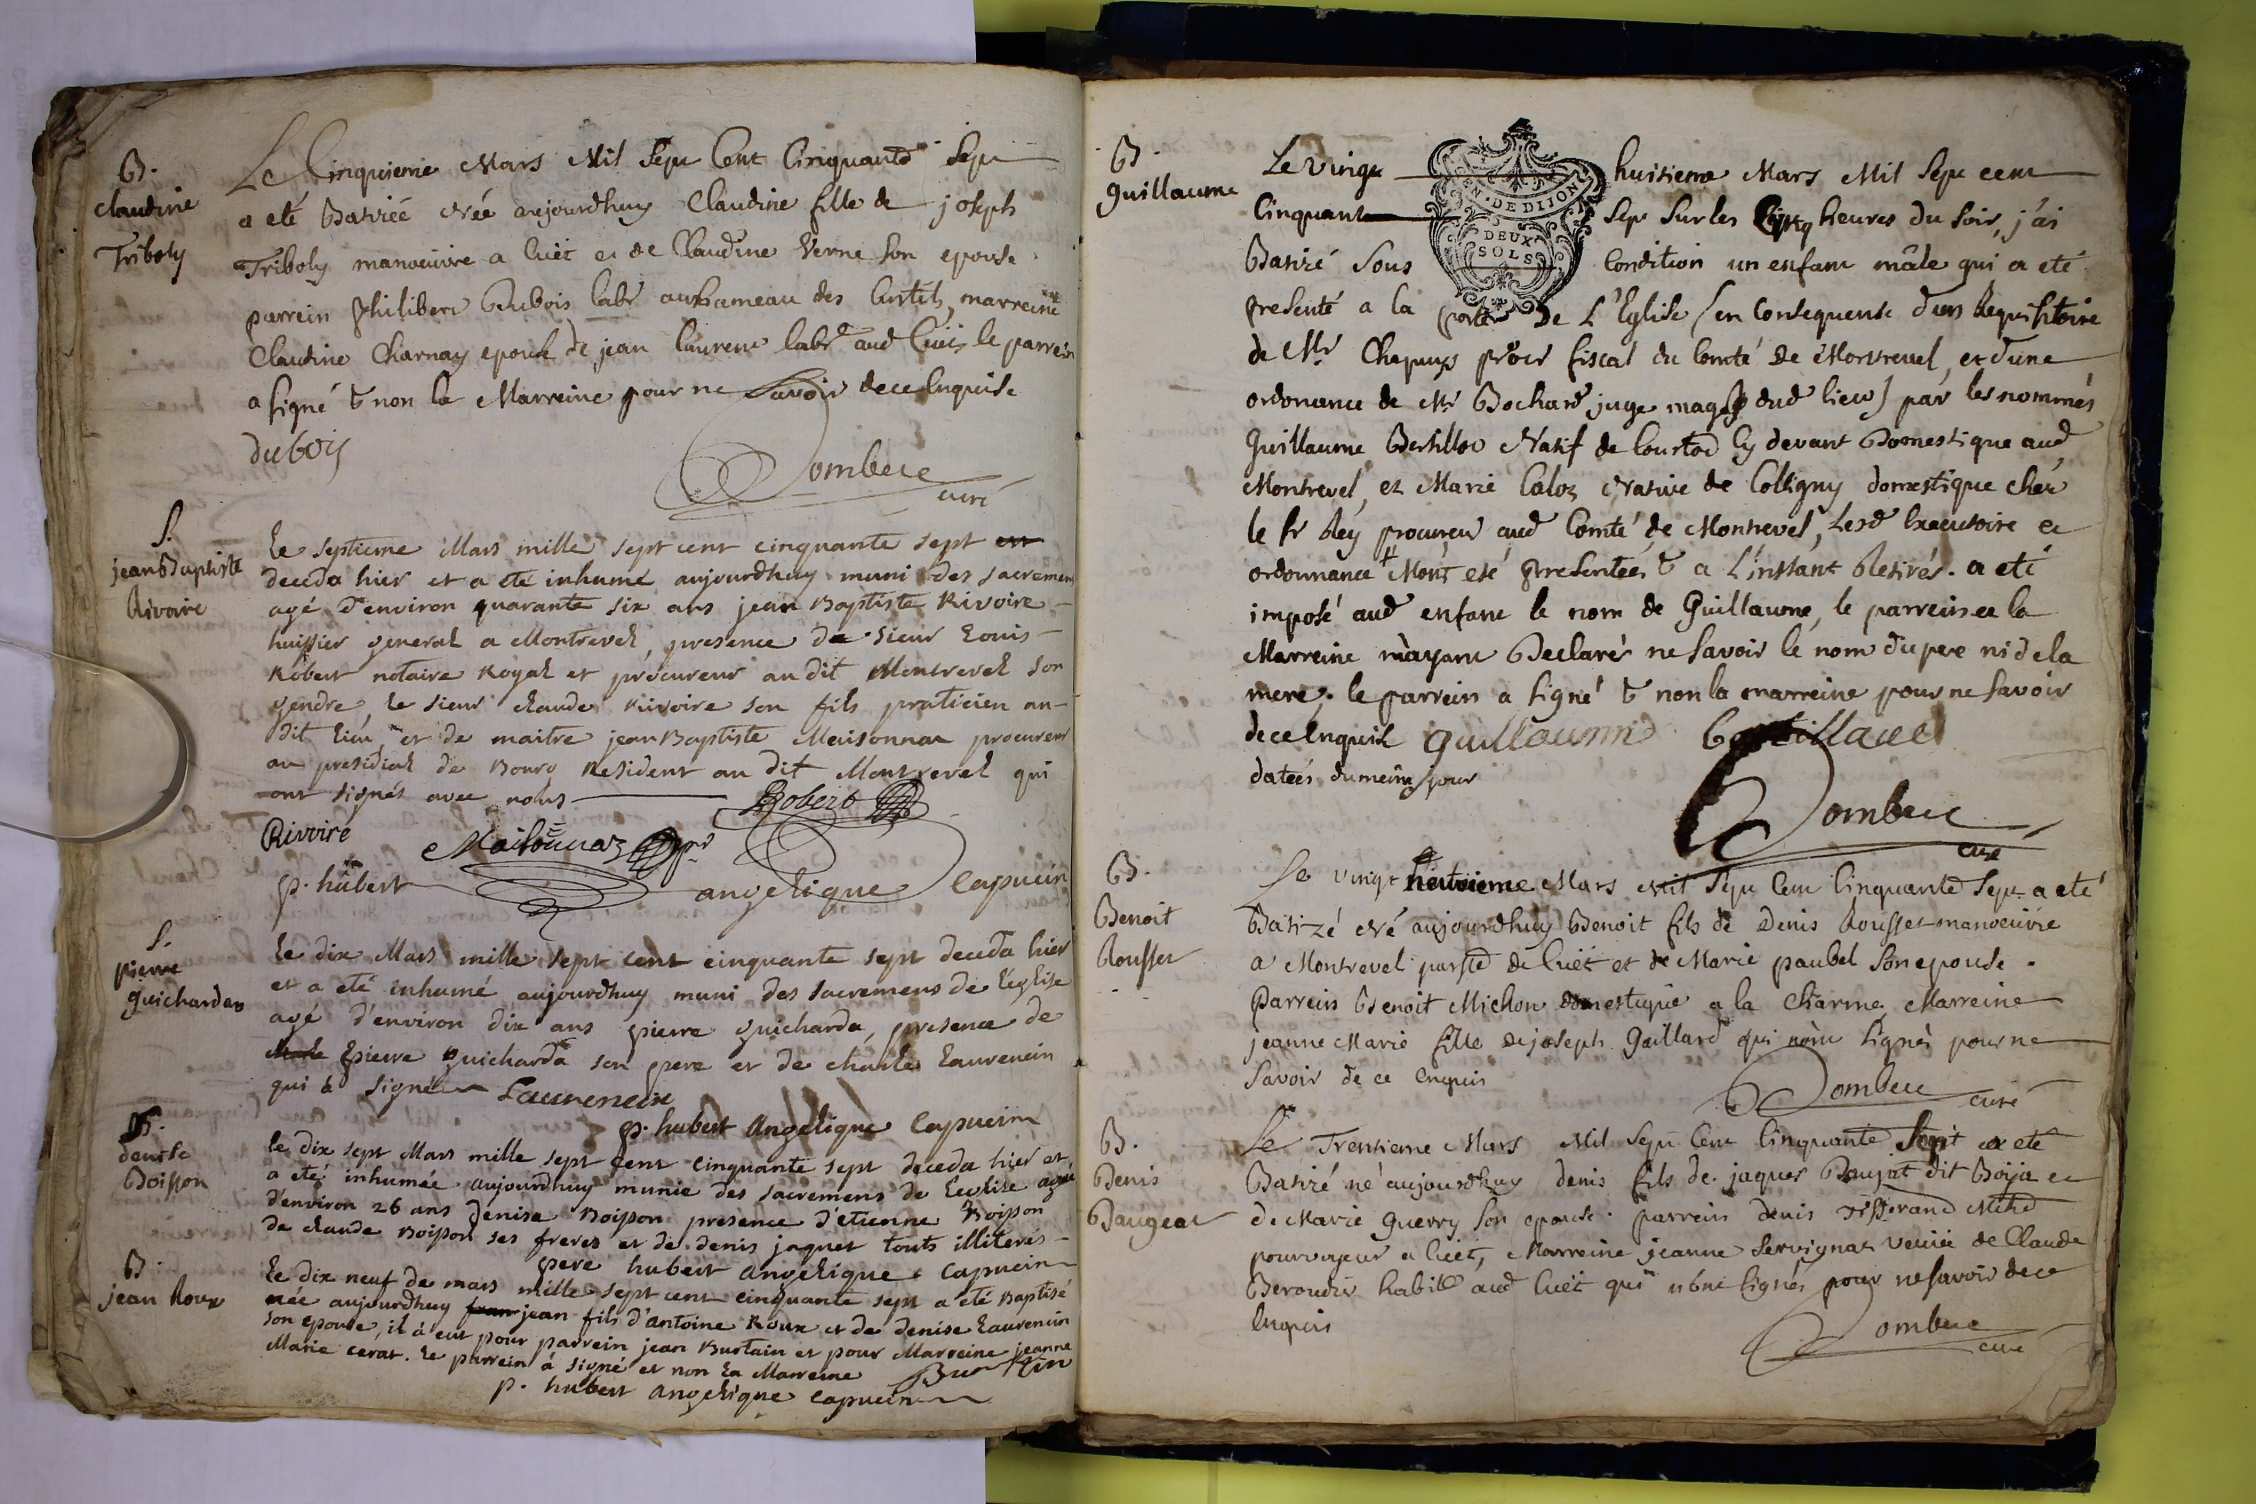 B.
Claudine
Triboly
Le Cinquieme Mars Mil Sept Cent Cinquante Sept
a eté Batizée Née aujourdhuy Claudine fille de joseph
Triboly manoeuvre a Cuët et de Claudine Verne son epouse
parrein Philibert Dubois labr au hameau des Curtils, marreine
Claudine Charnay epouse de jean laurent labr aud Cuët le parrein
a signé & non la Marreine pour ne savoir de ce Enquise
dubois
Dombeÿ
curé
S.
jean Baptiste
Rivoire
le septieme Mars mille sept cent cinquante sept
deceda hier et a eté inhumé aujourdhuy muni des sacremens
agé d'environ quarante six ans jean Baptiste Rivoire
huissier general a Montrevel, presence de sieur Louis
Robert notaire Royal et procureur au dit Montrevel son
gendre, le sieur claude Rivoire son fils praticien au
dit lieu, et de maitre jean Baptiste Maisonnat procureur
au presidial de Bourg Resident au dit Montrevel qui
ont signés avec nous
Robert
Rivoire
Maisonnaz
p. hubert angelique Capucin
S.
pierre
guichardan
le dix Mars mille sept cent cinquante sept deceda hier
et a eté inhumé aujourdhuy muni des sacremens de l'église
agé d'environ dix ans pierre guicharda, presence de
pierre guicharda son pere et de charles laurencin
qui à signé Laurencin
p. hubert Angelique Capucin
S.
denise
Boisson
le dix sept Mars mille sept cent cinquante sept deceda hier et
a eté inhumée aujourdhuy munie des sacremens de l'eglise agée
d'environ 26 ans denise Boisson presence d'etienne Boisson
de claude Boisson ses freres et de denis jaquet touts illiterés
pere hubert angelique capucin
B.
jean Roux
le dix neuf de mars mille sept cent cinquante sept a eté Baptisé
née aujourdhuy jean fils d'antoine Roux et de denise laurencin
son epouse, il à eut pour parrein jean Burtain et pour Marreine jeanne
Marie cerat. le parrein à signé et non la Marreine Burtin
p. hubert angelique capucin
B.
guillaume
Le vingt huitieme Mars Mil Sept cent
GEN. DE DIJON
DEUX
SOLS
Cinquante Sept Sur les Cinq heures du soir, j'ai
Batizé Sous Condition un enfant mâle qui a eté
presenté a la porte de L'Eglise (en Consequence d'un Requisitoire
de Mr Chapuys procr fiscal du Comté de Montrevel, et d'une
ordonance de Mr Bochard juge mage dud lieu) par les nommés
Guillaume Bertillot Natif de Courtod cy devant Domestique aud
Montrevel, et Marie Caloz Native de Colligny domestique chez
le sr Rey procureur aud Comté de Montrevel, Lesd Executoire et
ordonnance + M'ont eté presentées & a L'instant Retirés. a eté
imposé aud enfant le nom de Guillaume, le parrein et la
Marreine m'ayant Declaré ne savoir le nom du pere ni de la
mere; le parrein a signé & non la marreine pour ne savoir
de ce Enquise guillaume
datées du meme jour
Dombeÿ
curé
B.
Benoit
Rousset
Le vingt huitieme Mars Mil Sept Cent Cinquante Sept a eté
Batizé Né aujourdhuy Benoit fils de Denis Rousset manoeuvre
a Montrevel parsse de Cuët et de Marie paubel son epouse.
Parrein Benoit Michon domestique a la Charme, Marreine
jeanne Marie fille de joseph Gaillard qui n'ont signés pour ne
savoir de ce Enquis
Dombeÿ
curé
B.
Denis
Baugeat
Le Trentieme Mars Mil Sept Cent Cinquante Sept a eté
Batizé né aujourdhuy denis fils de jaques Baujat dit Boija et
de Marie Guerry son epouse. parrein denis Tisserand Mtd
pourvoyeur a Cuët, Marreine jeanne Servignat veuve de Claude
Beraudir habitte aud Cuët qui n'ont signés pour ne savoir de ce
Enquis
Dombeÿ
curé